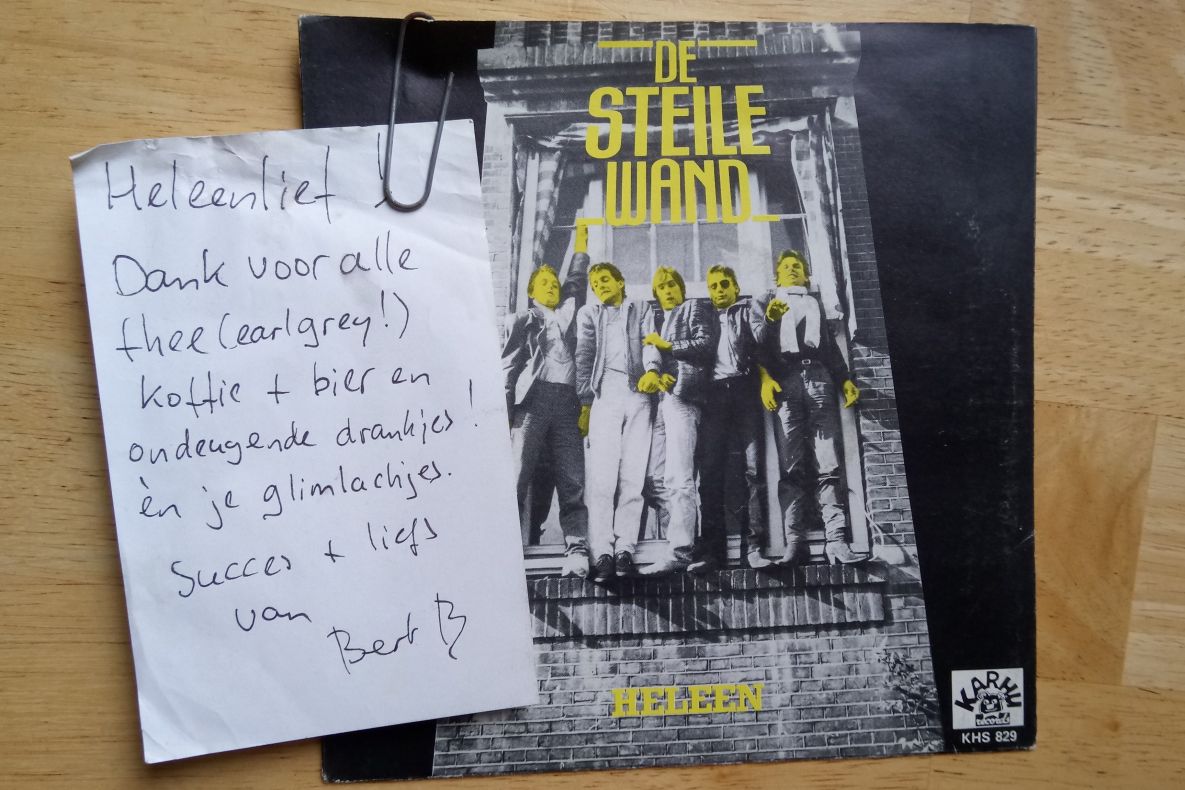 Heleenlief !
Dank voor alle
thee (earl grey!)
koffie + bier en
ondeugende drankjes!
èn je glimlachjes.
Succes + liefs
van
Bert B
DE
STEILE
WAND
HELEEN
KARHU
records
KHS 829